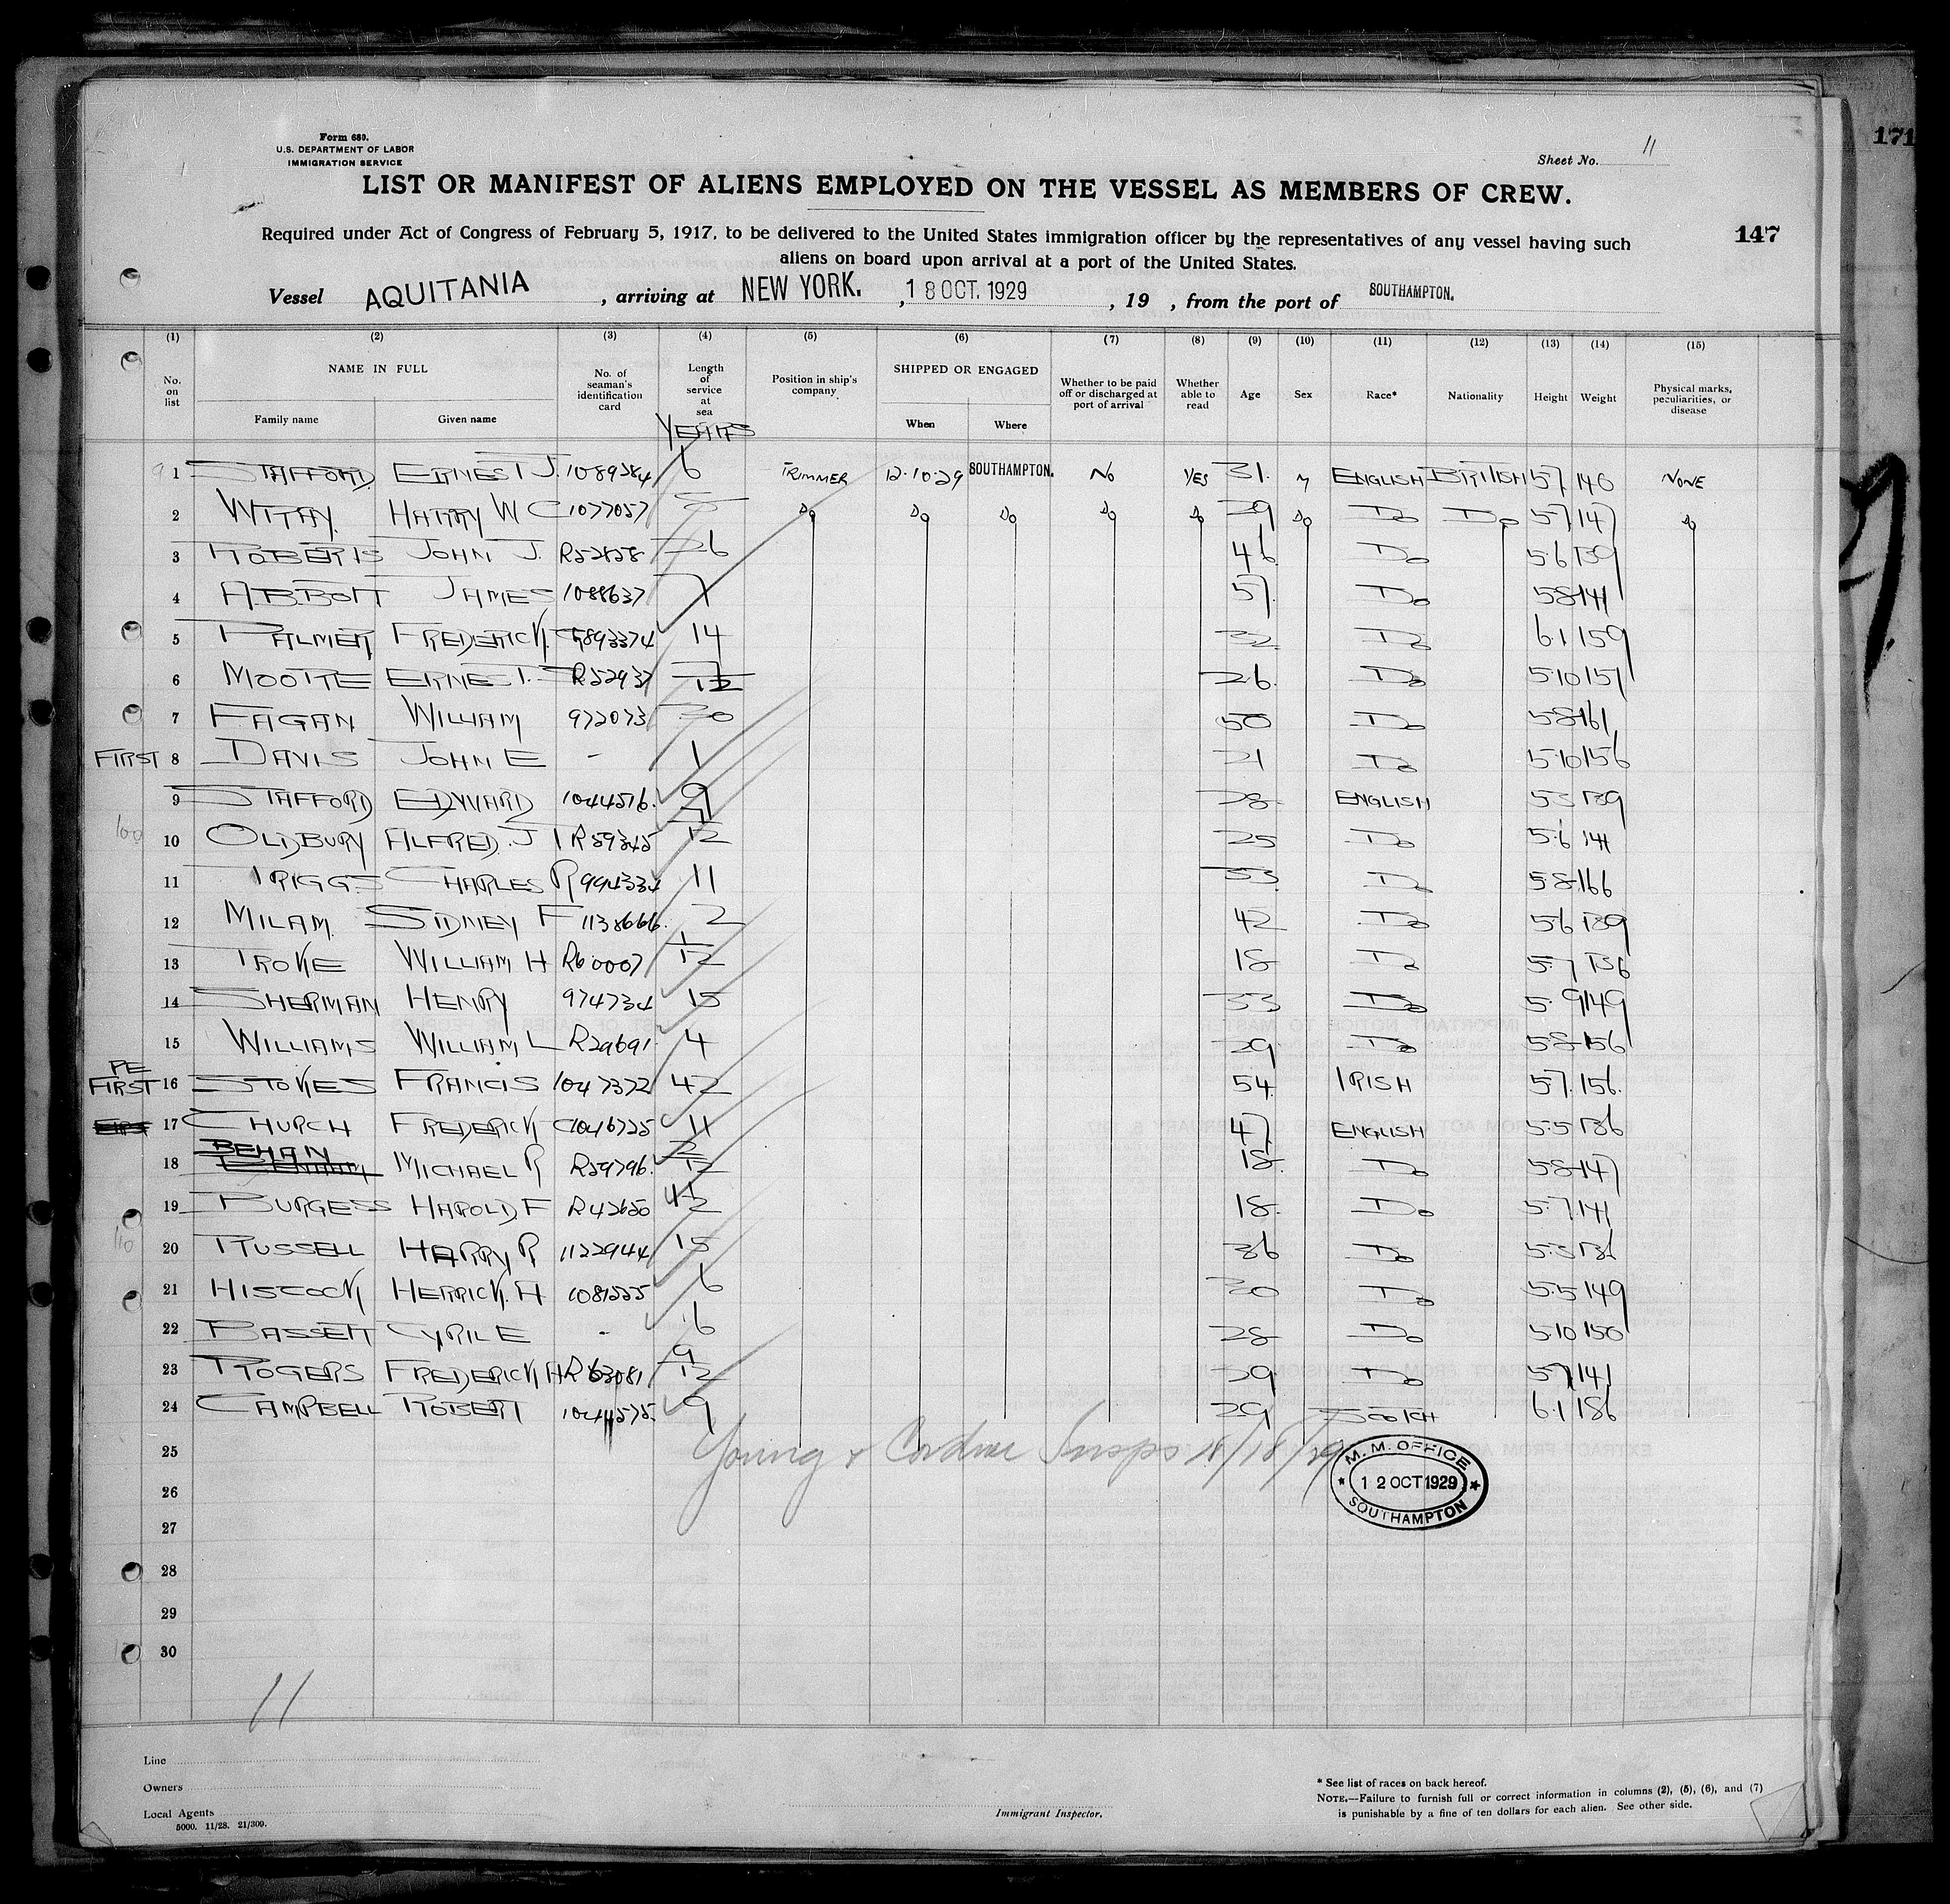 171
Form 680.
U.S. DEPARTMENT OF LABOR
IMMIGRATION SERVICE
Sheet No. 11
LIST OR MANIFEST OF ALIENS EMPLOYED ON THE VESSEL AS MEMBERS OF CREW.
147
Required under Act of Congress of February 5, 1917, to be delivered to the United States immigration officer by the representatives of any vessel having such
aliens on board upon arrival at a port of the United States.
Vessel AQUITANIA, arriving at NEW YORK., 18 OCT. 1929, 19 , from the port of SOUTHAMPTON.
(1) (2) (3) (4) (5) (6) (7) (8) (9) (10) (11) (12) (13) (14) (15)
No. on list NAME IN FULL Family name Given name No. of seaman's identification card Length of service at sea YEARS Position in ship's company SHIPPED OR ENGAGED When Where Whether to be paid off or discharged at port of arrival Whether able to read Age Sex Race* Nationality Height Weight Physical marks, peculiarities, or disease
1 STAFFORD ERNEST J. 1089284 6 TRIMMER 12.10.29 SOUTHAMPTON. NO YES 31. M ENGLISH BRITISH 5.7 146 NONE
2 HARRY W C 1077057 5 Do Do Do Do Do 29 Do Do Do 5.7 147 Do
3 ROBERTS JOHN J. R52828 26 46 Do 5.6 139
4 ABBOTT JAMES 1088637 7 57. Do 5.8 141
5 PALMER FREDERICK 893374 14 32 Do 6.1 159
6 MOORE ERNEST. R52937 26. Do 5.10 157
7 FAGAN WILLIAM 972073 30 50 Do 5.8 161
FIRST 8 DAVIS JOHN E - 1 21 Do 5.10 156
9 STAFFORD EDWARD 1044516. 9 28 ENGLISH 5.3 139
10 OLDBURY ALFRED. J R59345 12 25 Do 5.6 141
11 TRIGGS CHARLES R 994334 11 33 Do 5.8 166
12 MILAM. SIDNEY F 1138666. 2 42 Do 5.6 139
13 TROKE WILLIAM H R60007 1/12 18 Do 5.7 136
14 SHERMAN HENRY 974734 15 33 Do 5.9 149
15 WILLIAMS WILLIAM L R29691 4 29 Do 5.8 156
PE
FIRST 16 STOKES FRANCIS 1047372 42 54. IRISH 5.7. 156.
17 CHURCH FREDERICK 1046725 11 47 ENGLISH 5.5 136
18 BEHAN MICHAEL R R59796. 2/12 18. Do 5.8 147
19 BURGESS HAROLD F R42650 18. Do 5.7. 141
20 RUSSELL HARRY R 1122944 15 36 Do 5.3 136
21 HISCOCK HERRICK. H 1081555 6 30 Do 5.5 149
22 BASSETT CYRIL E - 16 28 Do 5.10 150
23 ROGERS FREDERICK H R63081 9/12 29 Do 5.7 141
24 CAMPBELL ROBERT 1044575. 9 29 SCOTCH 6.1 186
25
26
27
28
29
30
M. M. OFFICE
12 OCT 1929
SOUTHAMPTON
11
Line
Owners
Local Agents
5000. 11/28. 21/309.
Immigrant Inspector.
* See list of races on back hereof.
NOTE.—Failure to furnish full or correct information in columns (2), (5), (6), and (7)
is punishable by a fine of ten dollars for each alien. See other side.